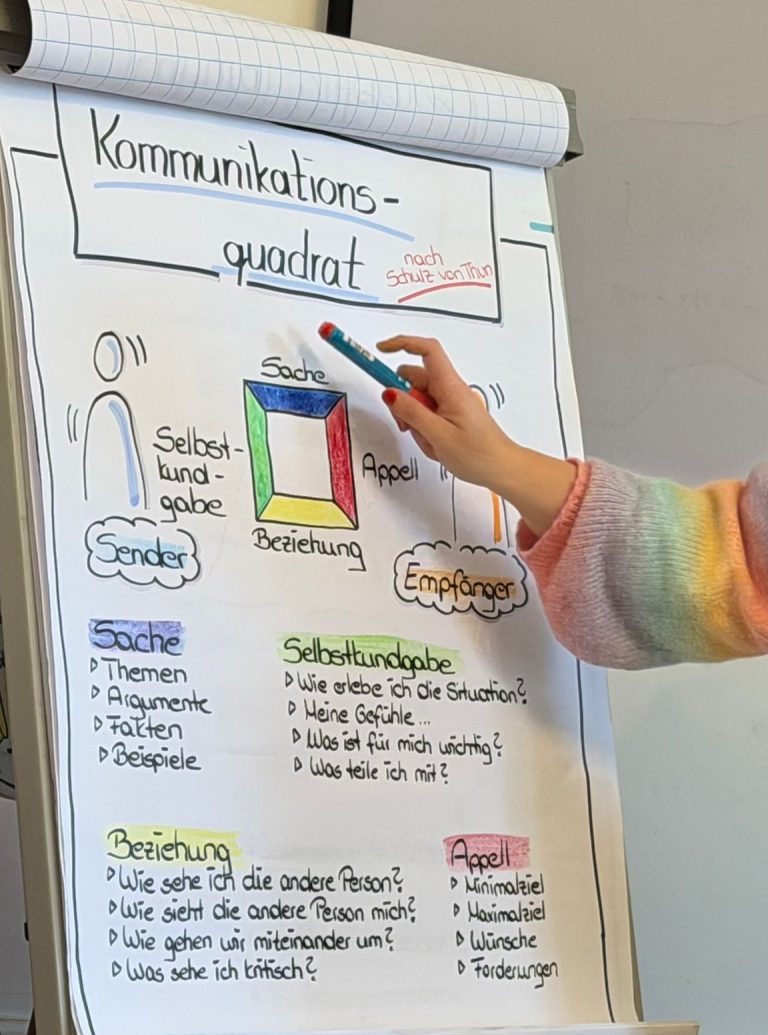 Kommunikations-
quadrat
nach
Schulz von Thun
Sache
Selbst-
kund-
gabe
Appell
Beziehung
Sender
Empfänger
Sache
Themen
Argumente
Fakten
Beispiele
Selbstkundgabe
Wie erlebe ich die Situation?
Meine Gefühle...
Was ist für mich wichtig?
Was teile ich mit?
Beziehung
Wie sehe ich die andere Person?
Wie sieht die andere Person mich?
Wie gehen wir miteinander um?
Was sehe ich kritisch?
Appell
Minimalziel
Maximalziel
Wünsche
Forderungen